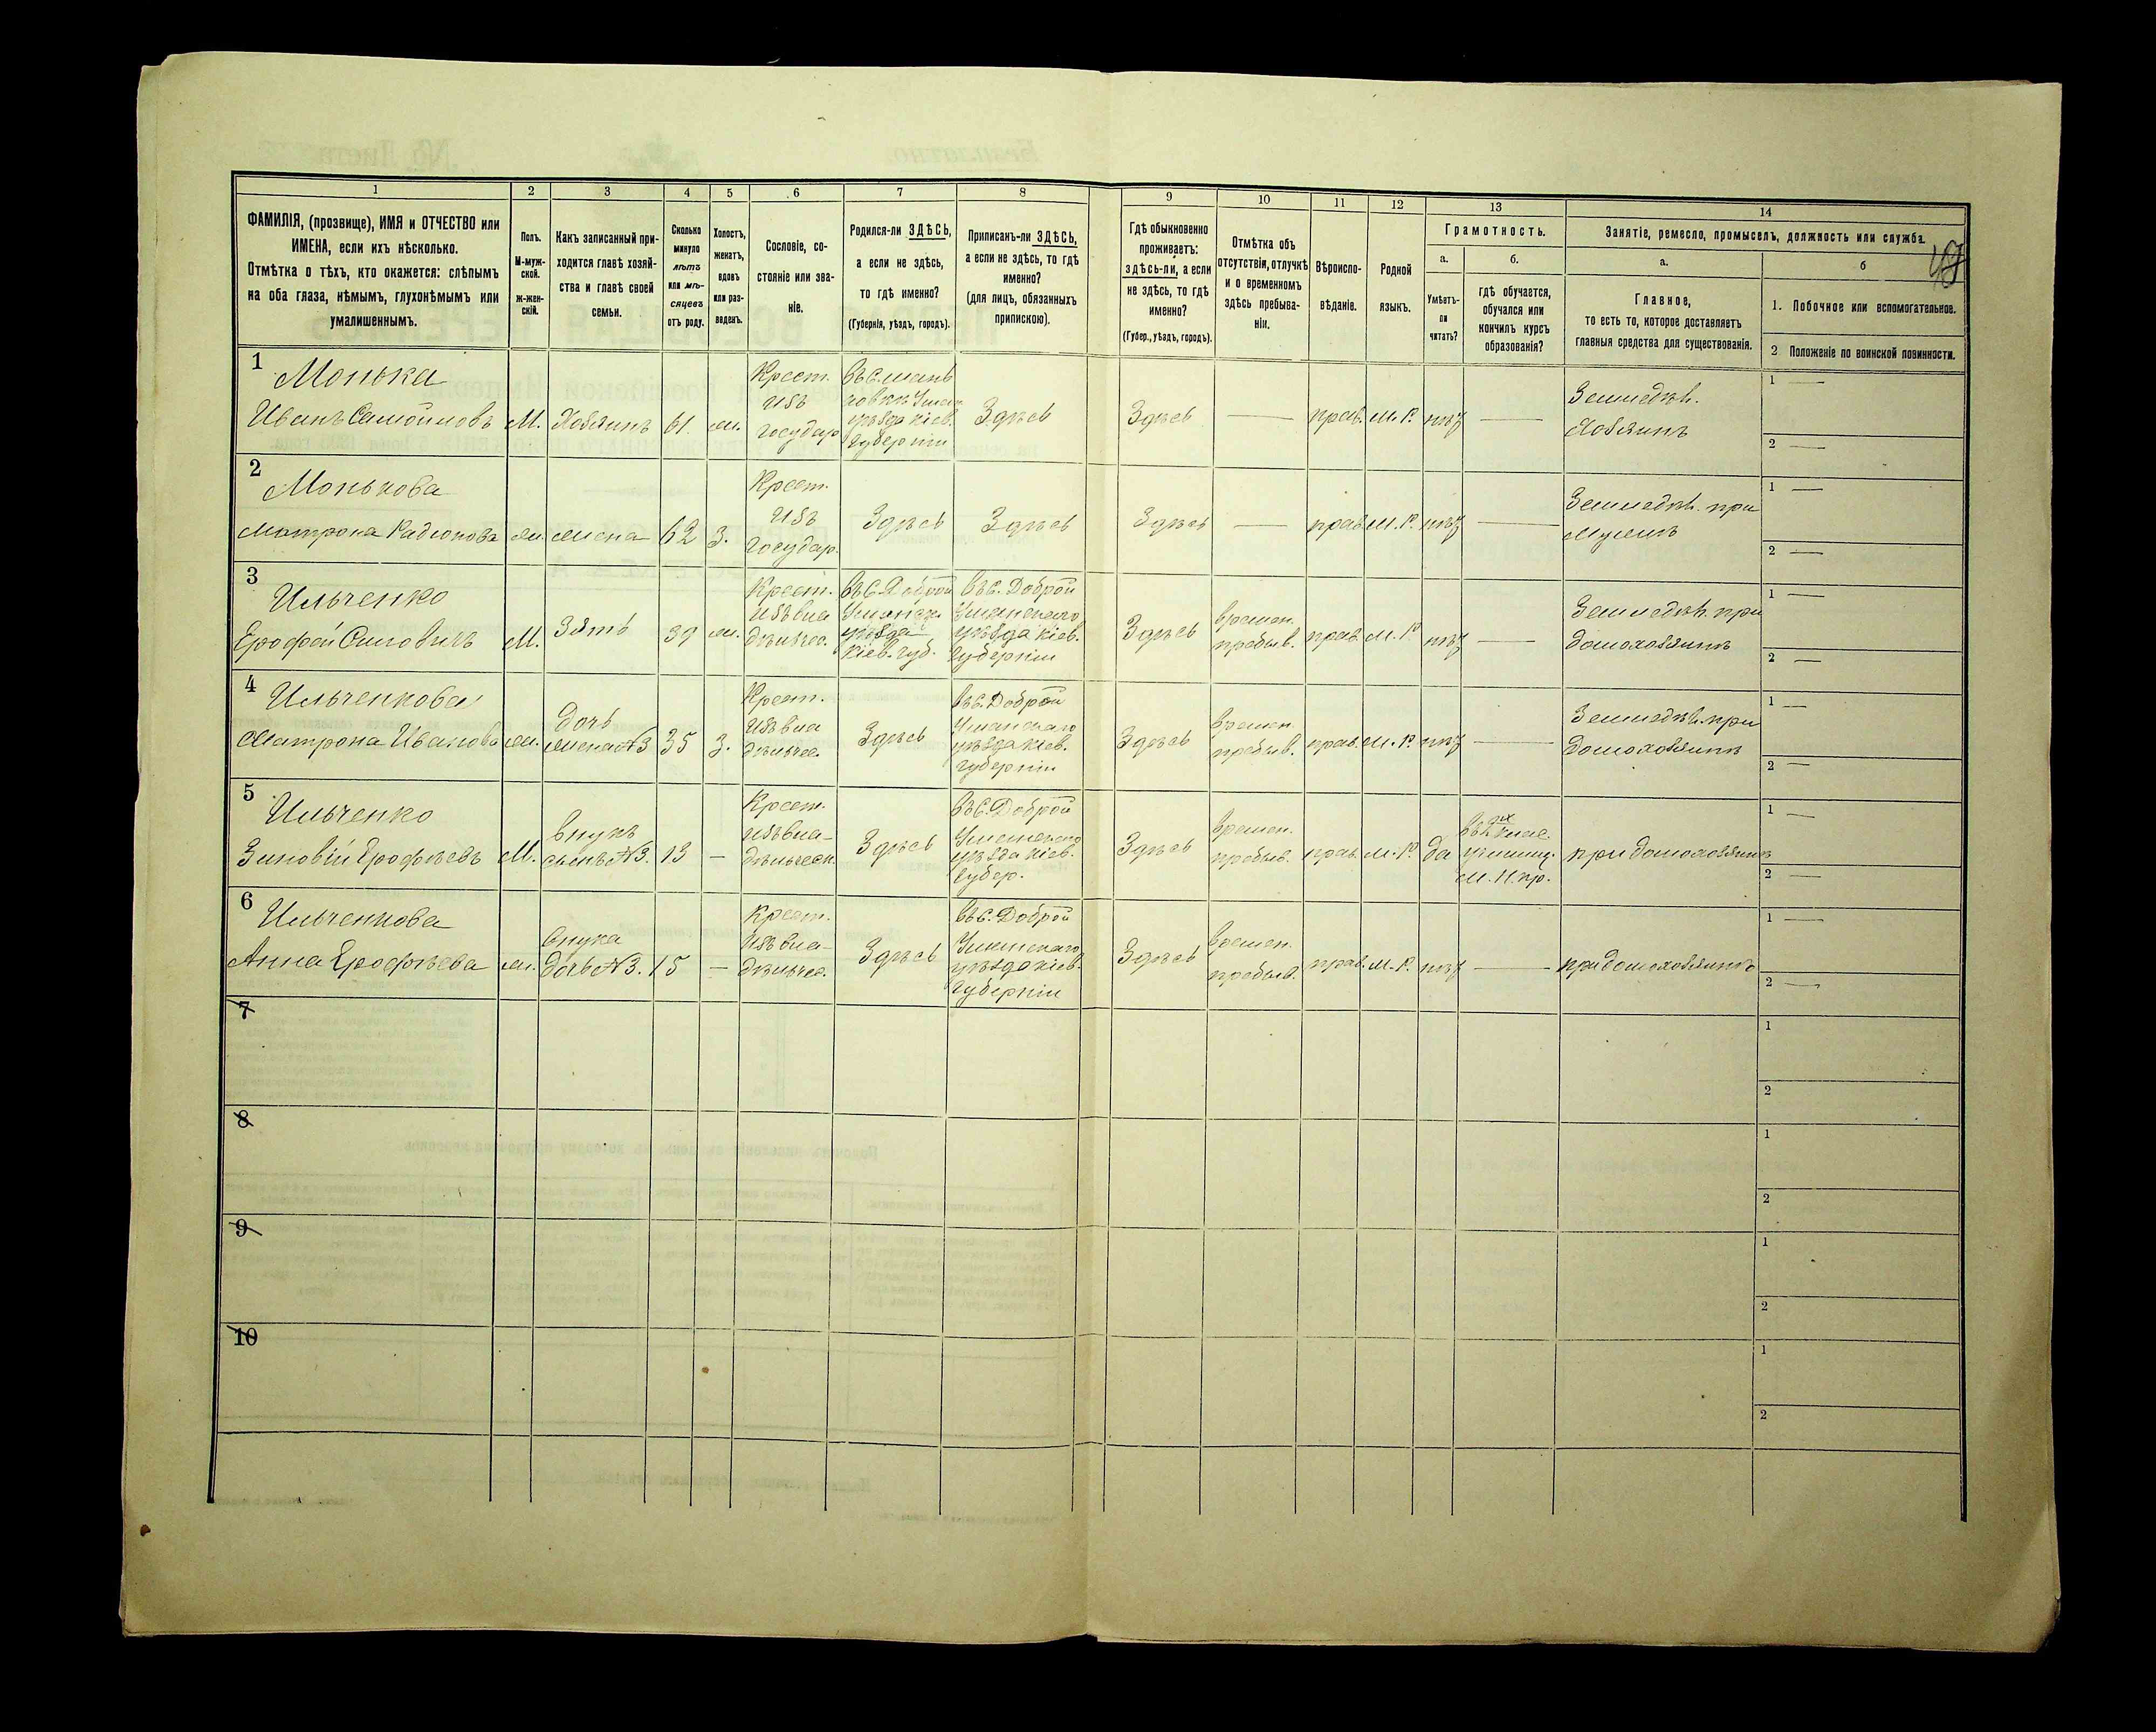 1 2 3 4 5 6 7 8 9 10 11 12 13 14
ФАМИЛІЯ, (прозвище), ИМЯ и ОТЧЕСТВО или
ИМЕНА, если ихъ нѣсколько.
Отмѣтка о тѣхъ, кто окажется: слѣпымъ
на оба глаза, нѣмымъ, глухонѣмымъ или
умалишеннымъ.
Полъ.
М-муж-
ской.
ж-жен-
скій.
Какъ записанный при-
ходится главѣ хозяй-
ства и главѣ своей
семьи.
Сколько
минуло
лѣтъ
или мѣ-
сяцевъ
отъ роду.
Холостъ,
женатъ,
вдовъ
или раз-
веденъ.
Сословіе, со-
стояніе или зва-
ніе.
Родился-ли ЗДѢСЬ,
а если не здѣсь,
то гдѣ именно?
(Губернія, уѣздъ, городъ).
Приписанъ-ли ЗДѢСЬ,
а если не здѣсь, то гдѣ
именно?
(для лицъ, обязанныхъ
припискою).
Гдѣ обыкновенно
проживаетъ:
здѣсь-ли, а если
не здѣсь, то гдѣ
именно?
(Губер., уѣздъ, городъ).
Отмѣтка объ
отсутствіи, отлучкѣ
и о временномъ
здѣсь пребыва-
ніи.
Вѣроиспо-
вѣданіе.
Родной
языкъ.
Грамотность.
а.
Умѣетъ-
ли
читать?
б.
гдѣ обучается,
обучался или
кончилъ курсъ
образованія?
Занятіе, ремесло, промыселъ, должность или служба.
а.
Главное,
то есть то, которое доставляетъ
главныя средства для существованія.
б
1. Побочное или вспомогательное.
2 Положеніе по воинской повинности.
1
Монька
Иванъ Самойловъ
М.
Хозяинъ
61
ж.
Крест.
изъ
государ.
уѣзда кіев.
губерніи
Здѣсь
Здѣсь
—
прав.
М. Р.
нѣт
—
Земледѣл.
Хозяинъ
1 —
2 —
2
Монькова
Матрона Радіонова
ж.
жена
62
З.
Крест.
изъ
государ.
Здѣсь
Здѣсь
Здѣсь
—
прав.
М. Р.
нѣт
—
Земледѣл. при
мужѣ
1 —
2 —
3
Ильченко
Ерофей
М.
Зять
39
ж.
Крест.
изъ вла
дѣльчес.
въ с. Доброй
Уманск.
уѣзда
Кіев. губ.
въ с. Доброй
Уманскаго
уѣзда кіев.
губерніи
Здѣсь
времен.
пребыв.
прав.
М. Р.
нѣт
—
Земледѣл. при
домохозяинѣ
1 —
2 —
4
Ильченкова
Матрона Иванова
ж.
дочь
жена №3
35
З.
Крест.
изъ вла
дѣльчес.
Здѣсь
въ с. Доброй
Уманскаго
уѣзда кіев.
губерніи
Здѣсь
времен.
пребыв.
прав.
М. Р.
нѣт
—
Земледѣл. при
домохозяинѣ
1 —
2 —
5
Ильченко
Зиновій Ерофѣевъ
М.
внукъ
сынъ №3.
13
—
Крест.
изъ вла-
дѣльческ.
Здѣсь
въ с. Доброй
Уманскаго
уѣзда кіев.
губер.
Здѣсь
времен.
пребыв.
прав.
М. Р.
да
училищ.
М. Н. пр.
при домохозяинѣ
1 —
2 —
6
Ильченкова
Анна Ерофѣева
ж.
внука
дочь №3.
15
—
Крест.
изъ вла-
дѣльчес.
Здѣсь
въ с. Доброй
Уманскаго
уѣзда кіев.
губерніи
Здѣсь
времен.
пребыв.
прав.
М. Р.
нѣт
—
при домохозяинѣ
1 —
2 —
7
1
2
8
1
2
9
1
2
10
1
2